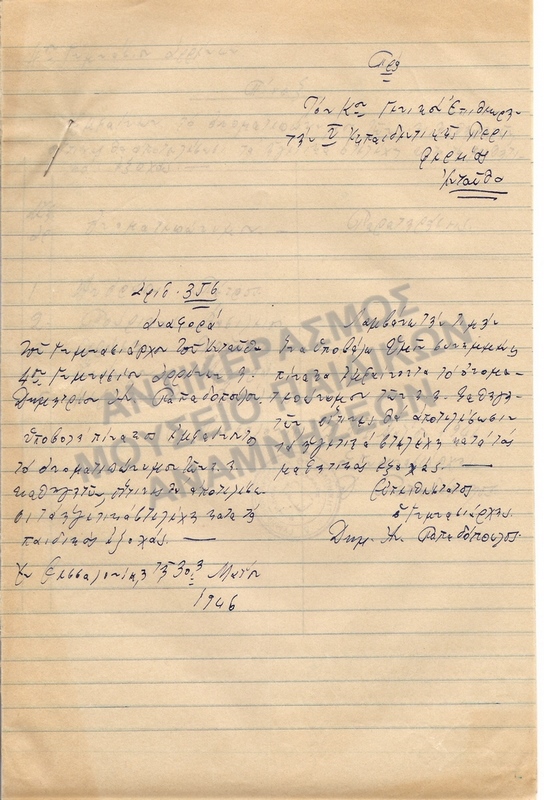 Πρὸς
Τὸν Κον Γενικὸν Ἐπιθεωρη-
τὴν Ε Ἐκπαιδευτικῆς Περι
φερείας
Ἐνταῦθα
Ἀριθ. 356
Ἀναφορά
Τοῦ Γυμνασιάρχου τοῦ ἐνταῦθα
4ου Γυμνασίου ἀρρένων κ.
Δημητρίου Ἀν. Παπαδοπούλου
Ὑποβολὴ πίνακος ἐμφαίνοντος
τὸ ὀνοματεπώνυμον τῶν κ.κ.
καθηγητῶν, οἵτινες θὰ ἀποτελέσω
σι τὰ ἡγετικὰ στελέχη κατὰ τὰς
παιδικὰς ἐξοχάς.
Ἐν Θεσσαλονίκῃ τῇ 30ῃ Μαΐου
1946
Λαμβάνω τὴν τιμὴν
ἵνα ὑποβάλω Ὑμῖν συνημμένως
πίνακα ἐμφαίνοντα τὸ ὀνομα-
τεπώνυμον τῶν κ.κ. καθηγη-
τῶν, οἵτινες θὰ ἀποτελέσωσιν
τὰ ἡγετικὰ στελέχη κατὰ τὰς
μαθητικὰς ἐξοχάς.
Εὐπειθέστατος
ὁ Γυμνασιάρχης
Δημ. Ἀν. Παπαδόπουλος
ΑΝΤΙΚΕΡΑΣΜΟΣ
ΜΟΥΣΕΙΟ ΠΑΙΔΙΚΩΝ
ΑΝΑΜΝΗΣΕΩΝ